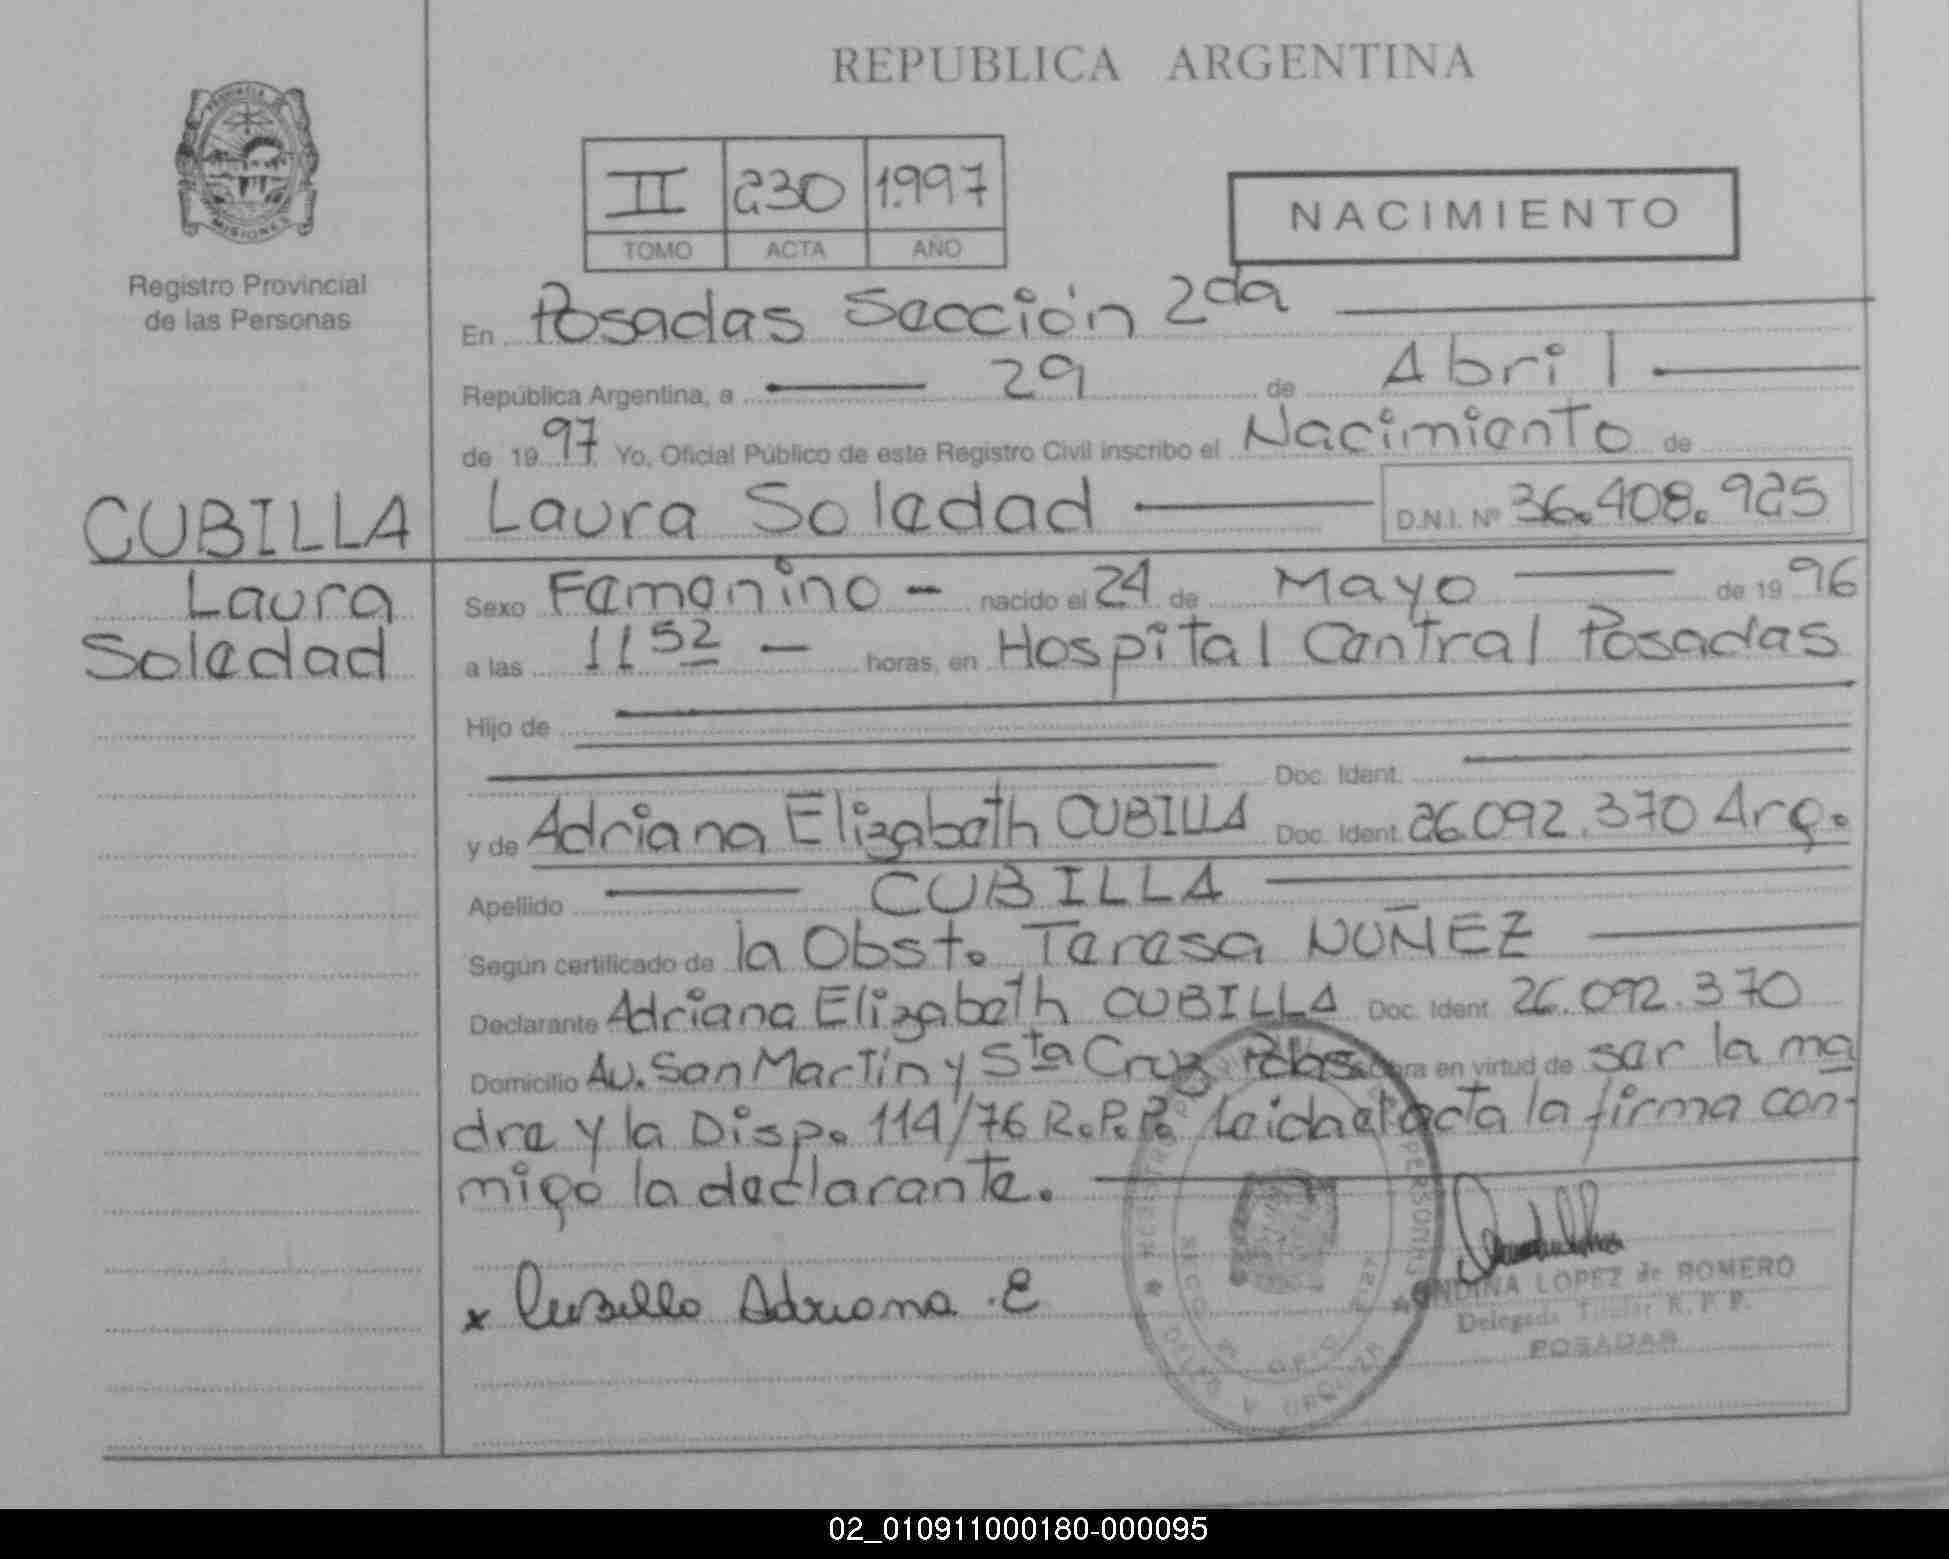 REPUBLICA ARGENTINA
PROVINCIA DE
MISIONES
Registro Provincial
de las Personas
II 230 1.997
TOMO ACTA AÑO
NACIMIENTO
En Posadas Sección 2da
República Argentina, a 29 de Abril
de 1997 Yo, Oficial Público de este Registro Civil inscribo el Nacimiento de
CUBILLA
Laura Soledad D.N.I. Nº 36.408.925
Laura
Soledad
Sexo Femenino - nacido el 24 de Mayo de 1996
a las 11 52 - horas, en Hospital Central Posadas
Hijo de
Doc. Ident.
y de Adriana Elizabeth CUBILLA Doc. Ident. 26.092.370 Arg.
Apellido CUBILLA
Según certificado de la Obst. Teresa NUÑEZ
Declarante Adriana Elizabeth CUBILLA Doc. Ident. 26.092.370
Domicilio Av. San Martín y Sta Cruz Pdas. Obra en virtud de ser la ma
dre y la Disp. 114/76 R.P.P. Leida el acta la firma con-
migo la declarante.
x Cubilla Adriana .E
ONDINA LOPEZ de ROMERO
Delegada Titular R. P. P.
POSADAS
PERSONAS
02_010911000180-000095